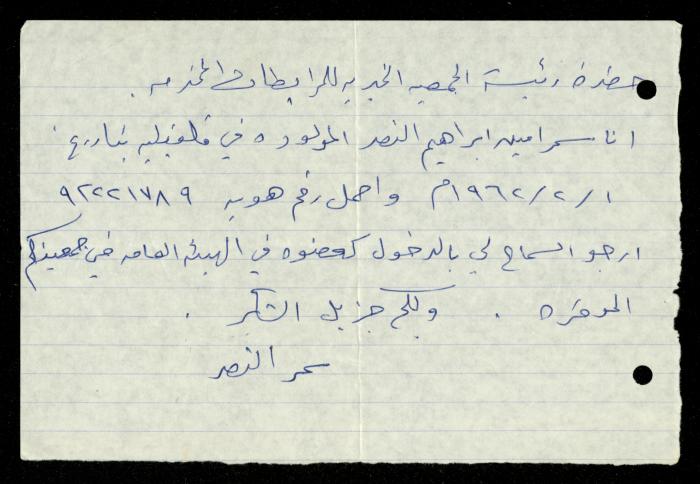 حضرة رئيسة الجمعيه الخيريه للمرابطات المحترمه .
انا سمر امين ابراهيم النصر المولوده في قلقيليه بتاريخ
١/٢/١٩٦٢م واحمل رقم هويه ٩٢٢٢١٧٨٩
ارجو السماح لي بالدخول كعضوه في الهيئه العامه في جمعيتكم
الموقره . ولكم جزيل الشكر .
سمر النصر